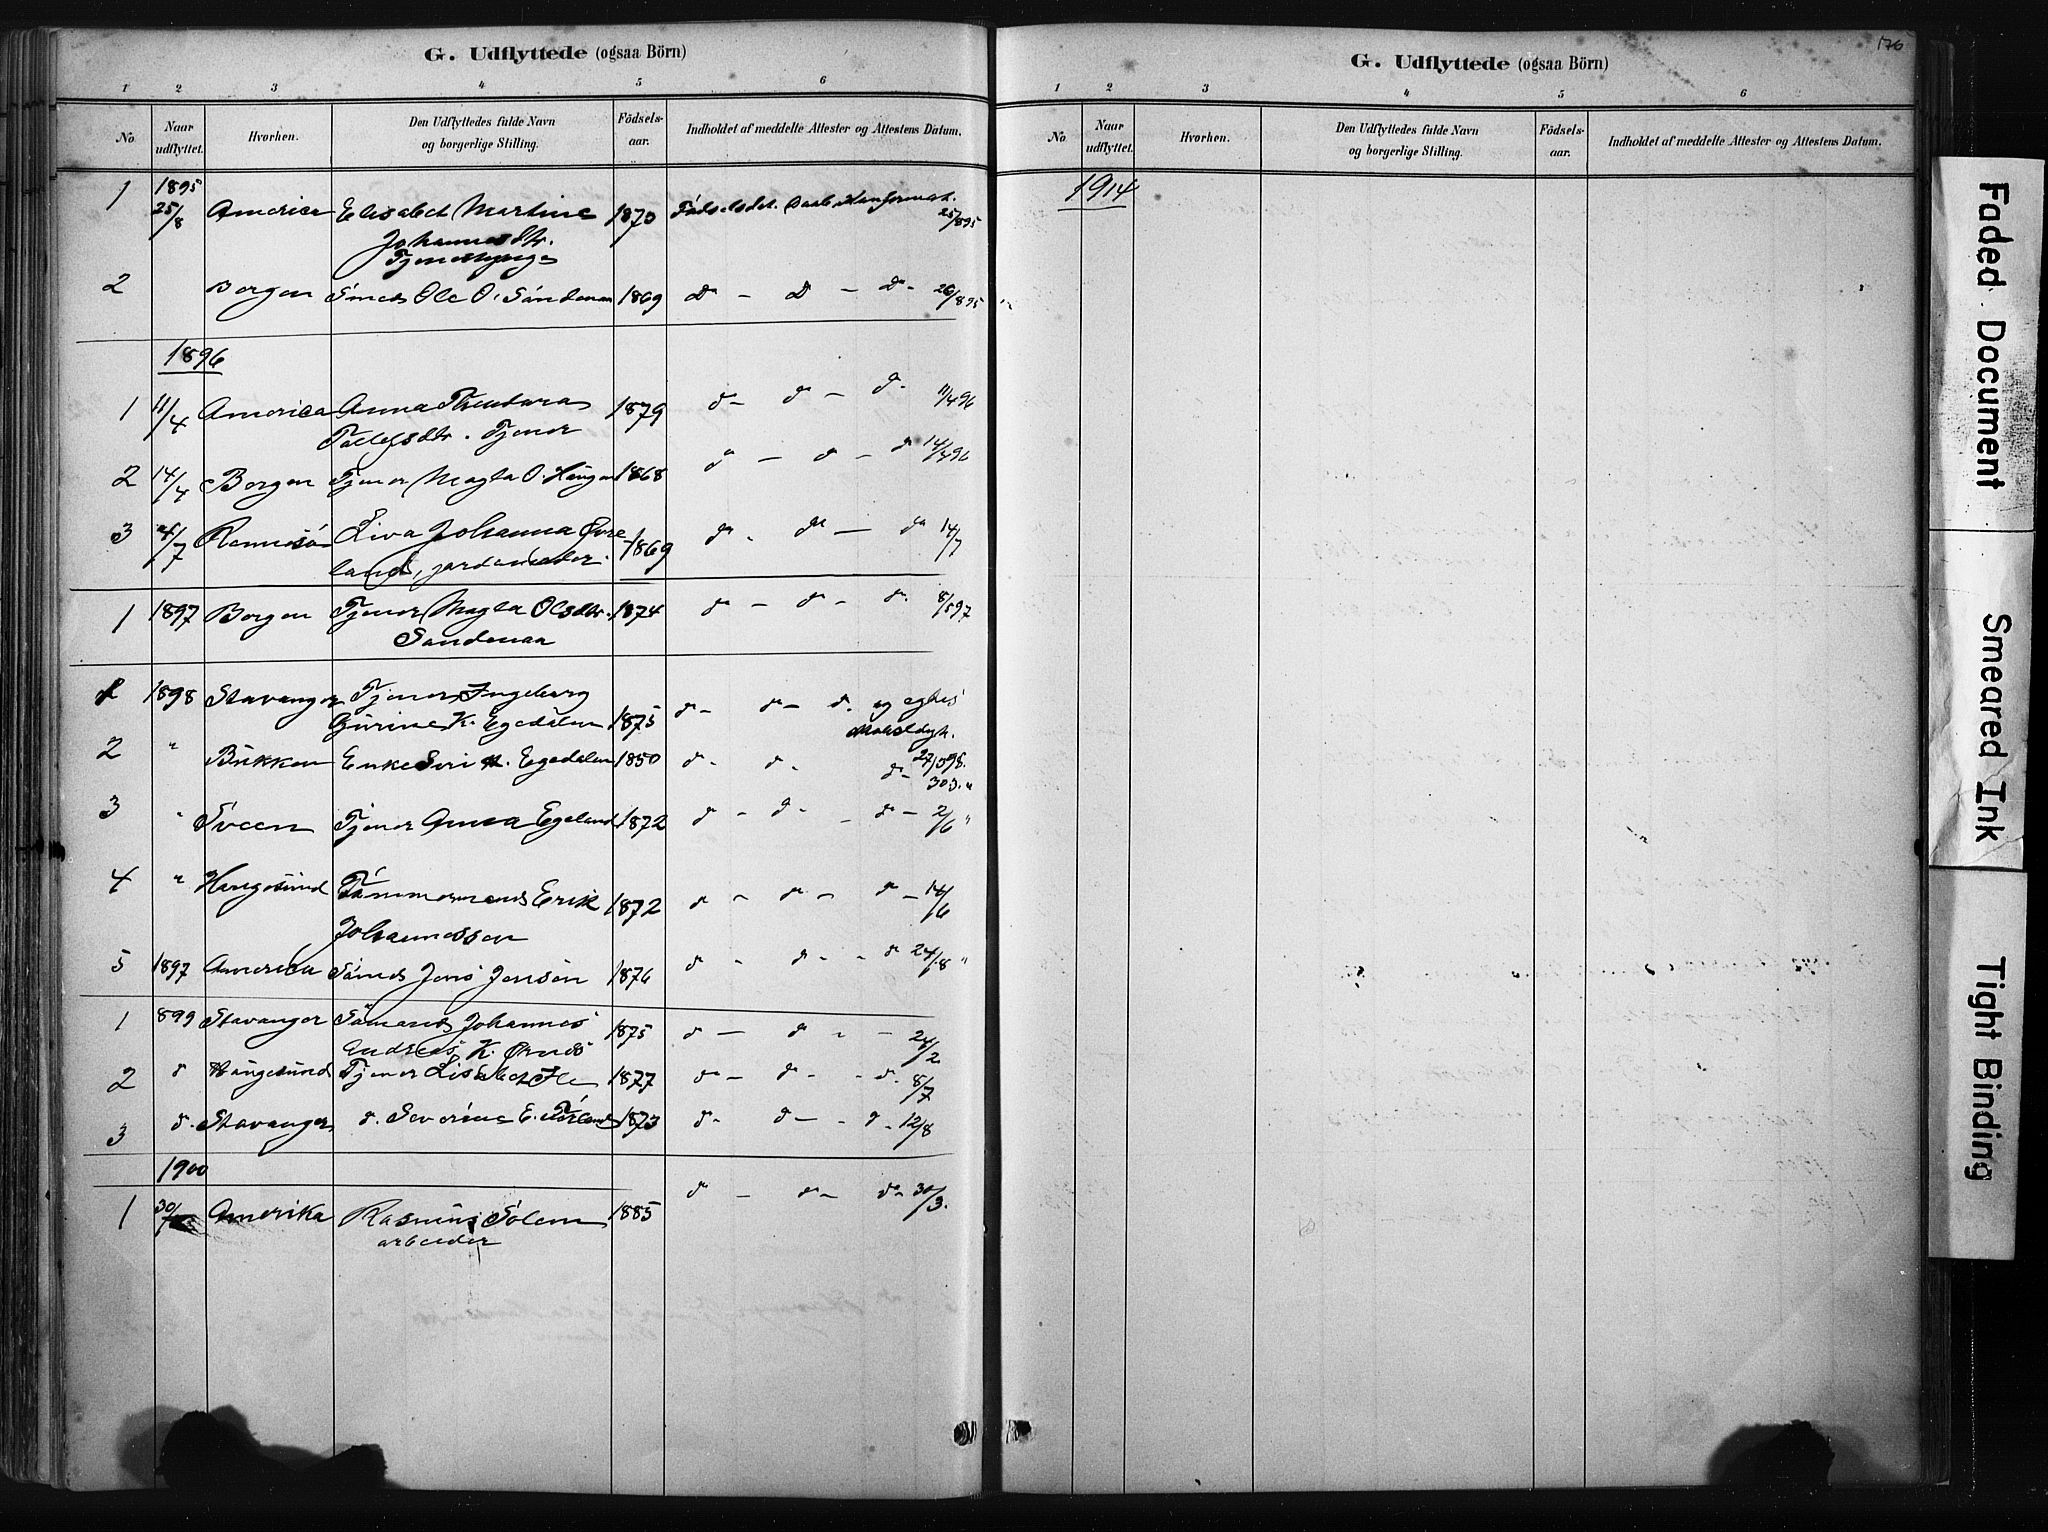 G. Udflyttede (ogsaa Börn)
1 2 3 4 5 6
No Naar udflyttet. Hvorhen. Den Udflyttedes fulde Navn og borgerlige Stilling. Födsels-aar. Indholdet af meddelte Attester og Attestens Datum.
1895
1 25/8 America Elisabet Martine 1870 Födselsdt. Daab Konfirmat. 25/8 95
Johannesdtr.
Tjenestepige
2 Bergen Smed Ole O. Sandenaa 1869 D° — D° — D° - 26/8 95
1896
1 11/4 America Anna Theodora 1879 d° — d° — d° 11/4 96
Tollefsdtr. Tjener
2 14/4 Bergen Tjener Magla O. Haugen 1868 d° — d° — d° 14/4 96
3 4/7 Rennesø Liva Johanna Øvre- 1869 d° - d° — d° 14/7
land, jordemoder.
1 1897 Bergen Tjener Magla Olsdtr. 1874 d° — d° — d° 8/5 97
Sandenaa
1 1898 Stavanger Tjener Ingeborg
Gurine K. Egedalen 1875 d° — d° — d° og
2 " Bukken Enke Seri Egedalen 1850 d° - d° - d° -
3 " Sveen Tjener Anna Egeland 1872 d° — d° - d° — 2/6 "
4 " Haugesund Tømmermand Erik 1872 d° - d° — d° — 14/6
Johannessen
5 1897 America Smed Jens Jensen 1876 d° - d° - d° 24/8 "
1 899 Stavanger Johannes 1875 d° — d° - — 24/2
Andreas K. Ørnes
2 d° Haugesund Tjener Lisabet 1877 d° — d° - d° 8/7
3 d° Stavanger d° Severine E. 1873 d° - d° — d° - 12/8
1900
1 30/ Amerika Rasmus Solem 1885 d° — d° — d° 30/3.
arbeider
176
G. Udflyttede (ogsaa Börn)
1 2 3 4 5 6
No Naar udflyttet. Hvorhen. Den Udflyttedes fulde Navn og borgerlige Stilling. Födsels-aar. Indholdet af meddelte Attester og Attestens Datum.
1914
Faded Document
Smeared Ink
Tight Binding